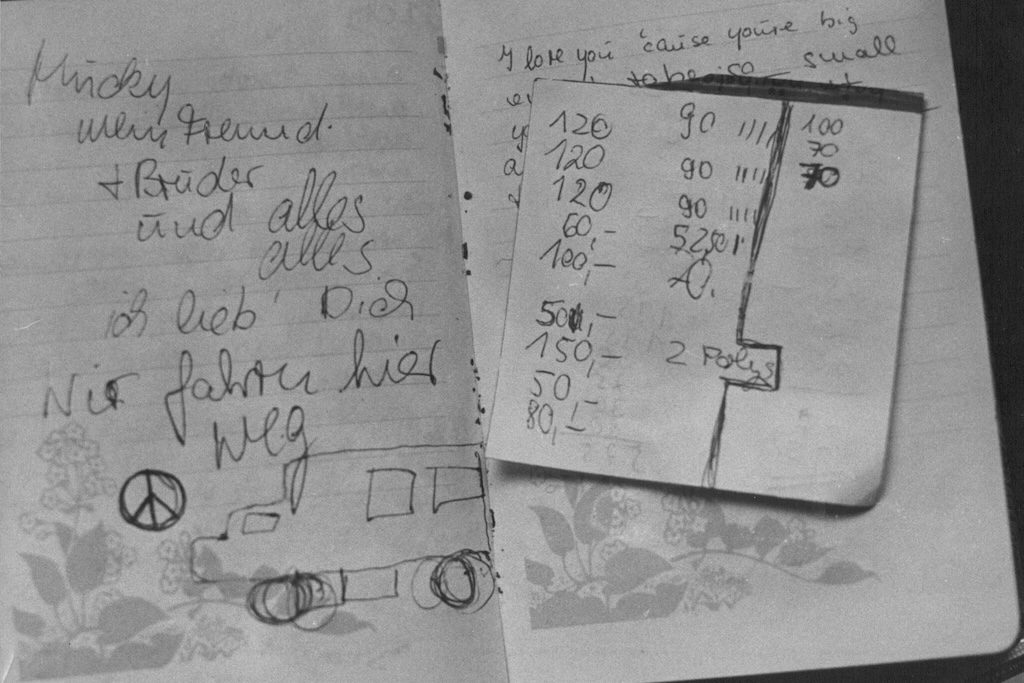 Micky
mein Freund.
+ Brüder
und alles
alles
ich lieb' Dich
Wir fahren hier
weg
I love you 'cause you're big
to be so small
120
120
120
60,-
100,-
50,-
150,-
50,-
80,-
90 ||||
90 ||||
90 ||||
52,50
2 Polys
100
70
70